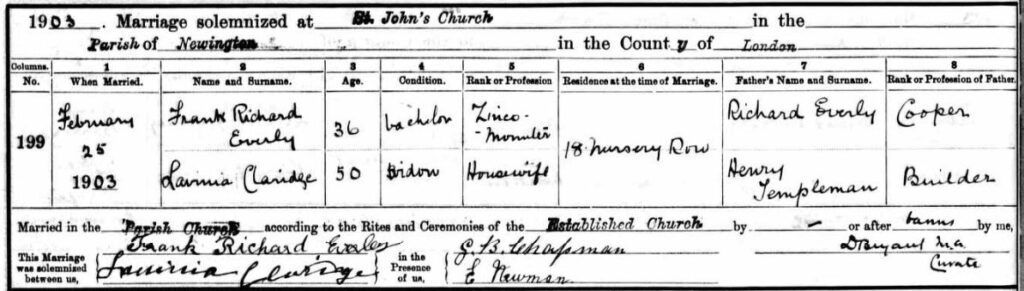 1903. Marriage solemnized at St. John's Church in the
Parish of Newington in the County of London
Columns. 1 2 3 4 5 6 7 8
No. When Married. Name and Surname. Age. Condition. Rank or Profession Residence at the time of Marriage. Father's Name and Surname. Rank or Profession of Father.
199
February
25
1903
Frank Richard
Everly
36
bachelor
Zinco-
Mounter
18 Nursery Row
Richard Everly
Cooper
Lavinia Claridge
50
Widow
Housewife
Henry
Templeman
Builder
Married in the Parish Church according to the Rites and Ceremonies of the Established Church by - or after banns by me,
This Marriage was solemnized between us,
Frank Richard Everley
Lavinia Claridge
in the Presence of us,
G. B. Chapman
E Newman
D Bryant M.A.
Curate